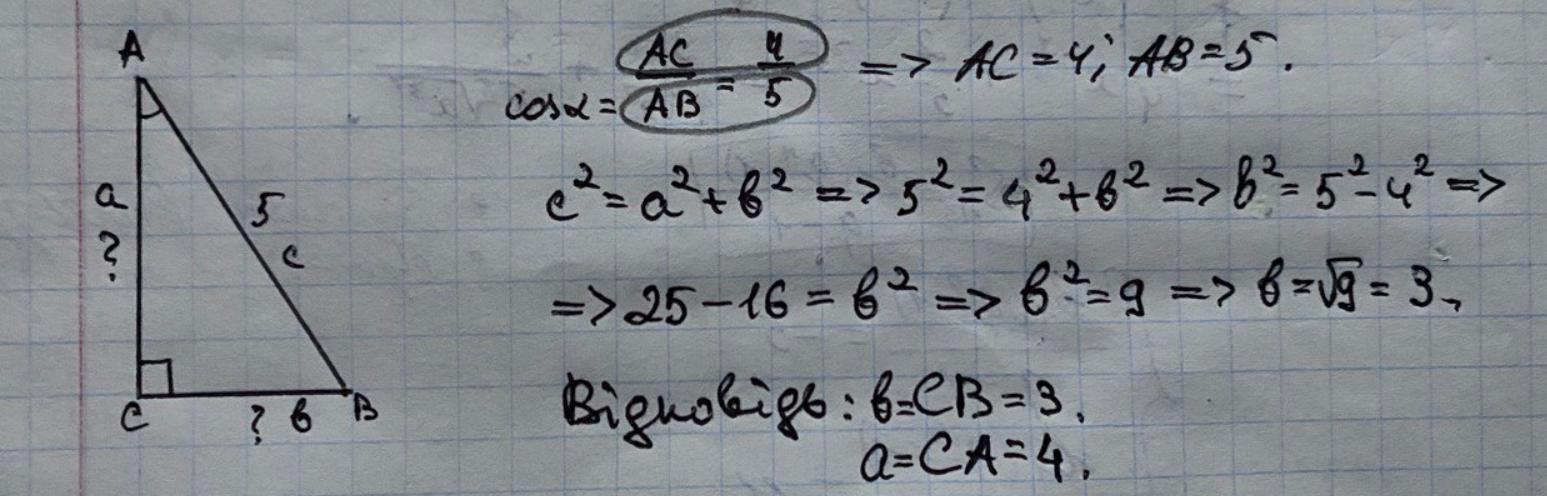 A
a
?
5
c
C
? в B
cosα = AC/AB = 4/5 => AC = 4; AB = 5.
c² = a² + в² => 5² = 4² + в² => в² = 5² - 4² =>
=> 25 - 16 = в² => в² = 9 => в = √9 = 3.
Відповідь: в = CB = 3.
a = CA = 4.